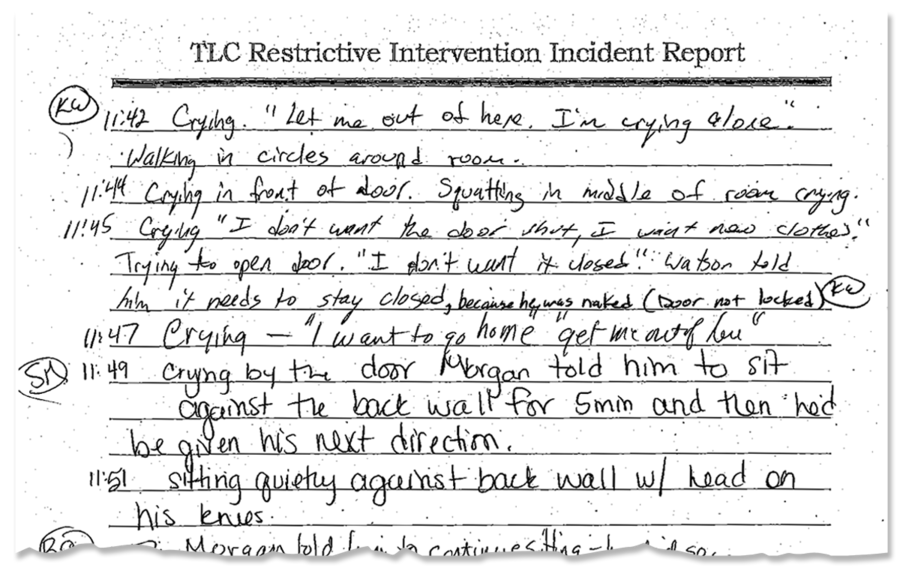 TLC Restrictive Intervention Incident Report
KW 11:42 Crying. "Let me out of here. I'm crying alone".
Walking in circles around room.
11:44 Crying in front of door. Squatting in middle of room crying.
11:45 Crying "I don't want the door shut, I want new clothes."
Trying to open door. "I don't want it closed". Watson told
him it needs to stay closed, because he was naked (Door not locked) KW
11:47 Crying — "I want to go home" "get me out of here"
SM 11:49 Cryng by the door Morgan told him to sit
against the back wall for 5min and then he'd
be given his next direction.
11:51 sitting quietly against back wall w/ head on
his knees.
Morgan told